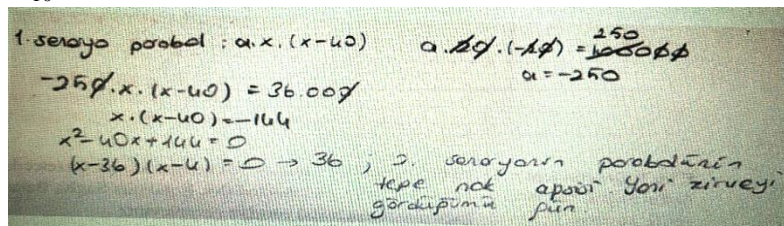 1. senaryo parabol : a.x.(x-40)
a.20.(-20) = 100000 250
a = -250
-250.x.(x-40) = 36.000
x.(x-40) = -144
x²-40x+144 = 0
(x-36)(x-4) = 0 → 36 ; 2. senaryonun parabolünün
tepe nok apsisi. Yani zirveyi
gördüğümü gün.